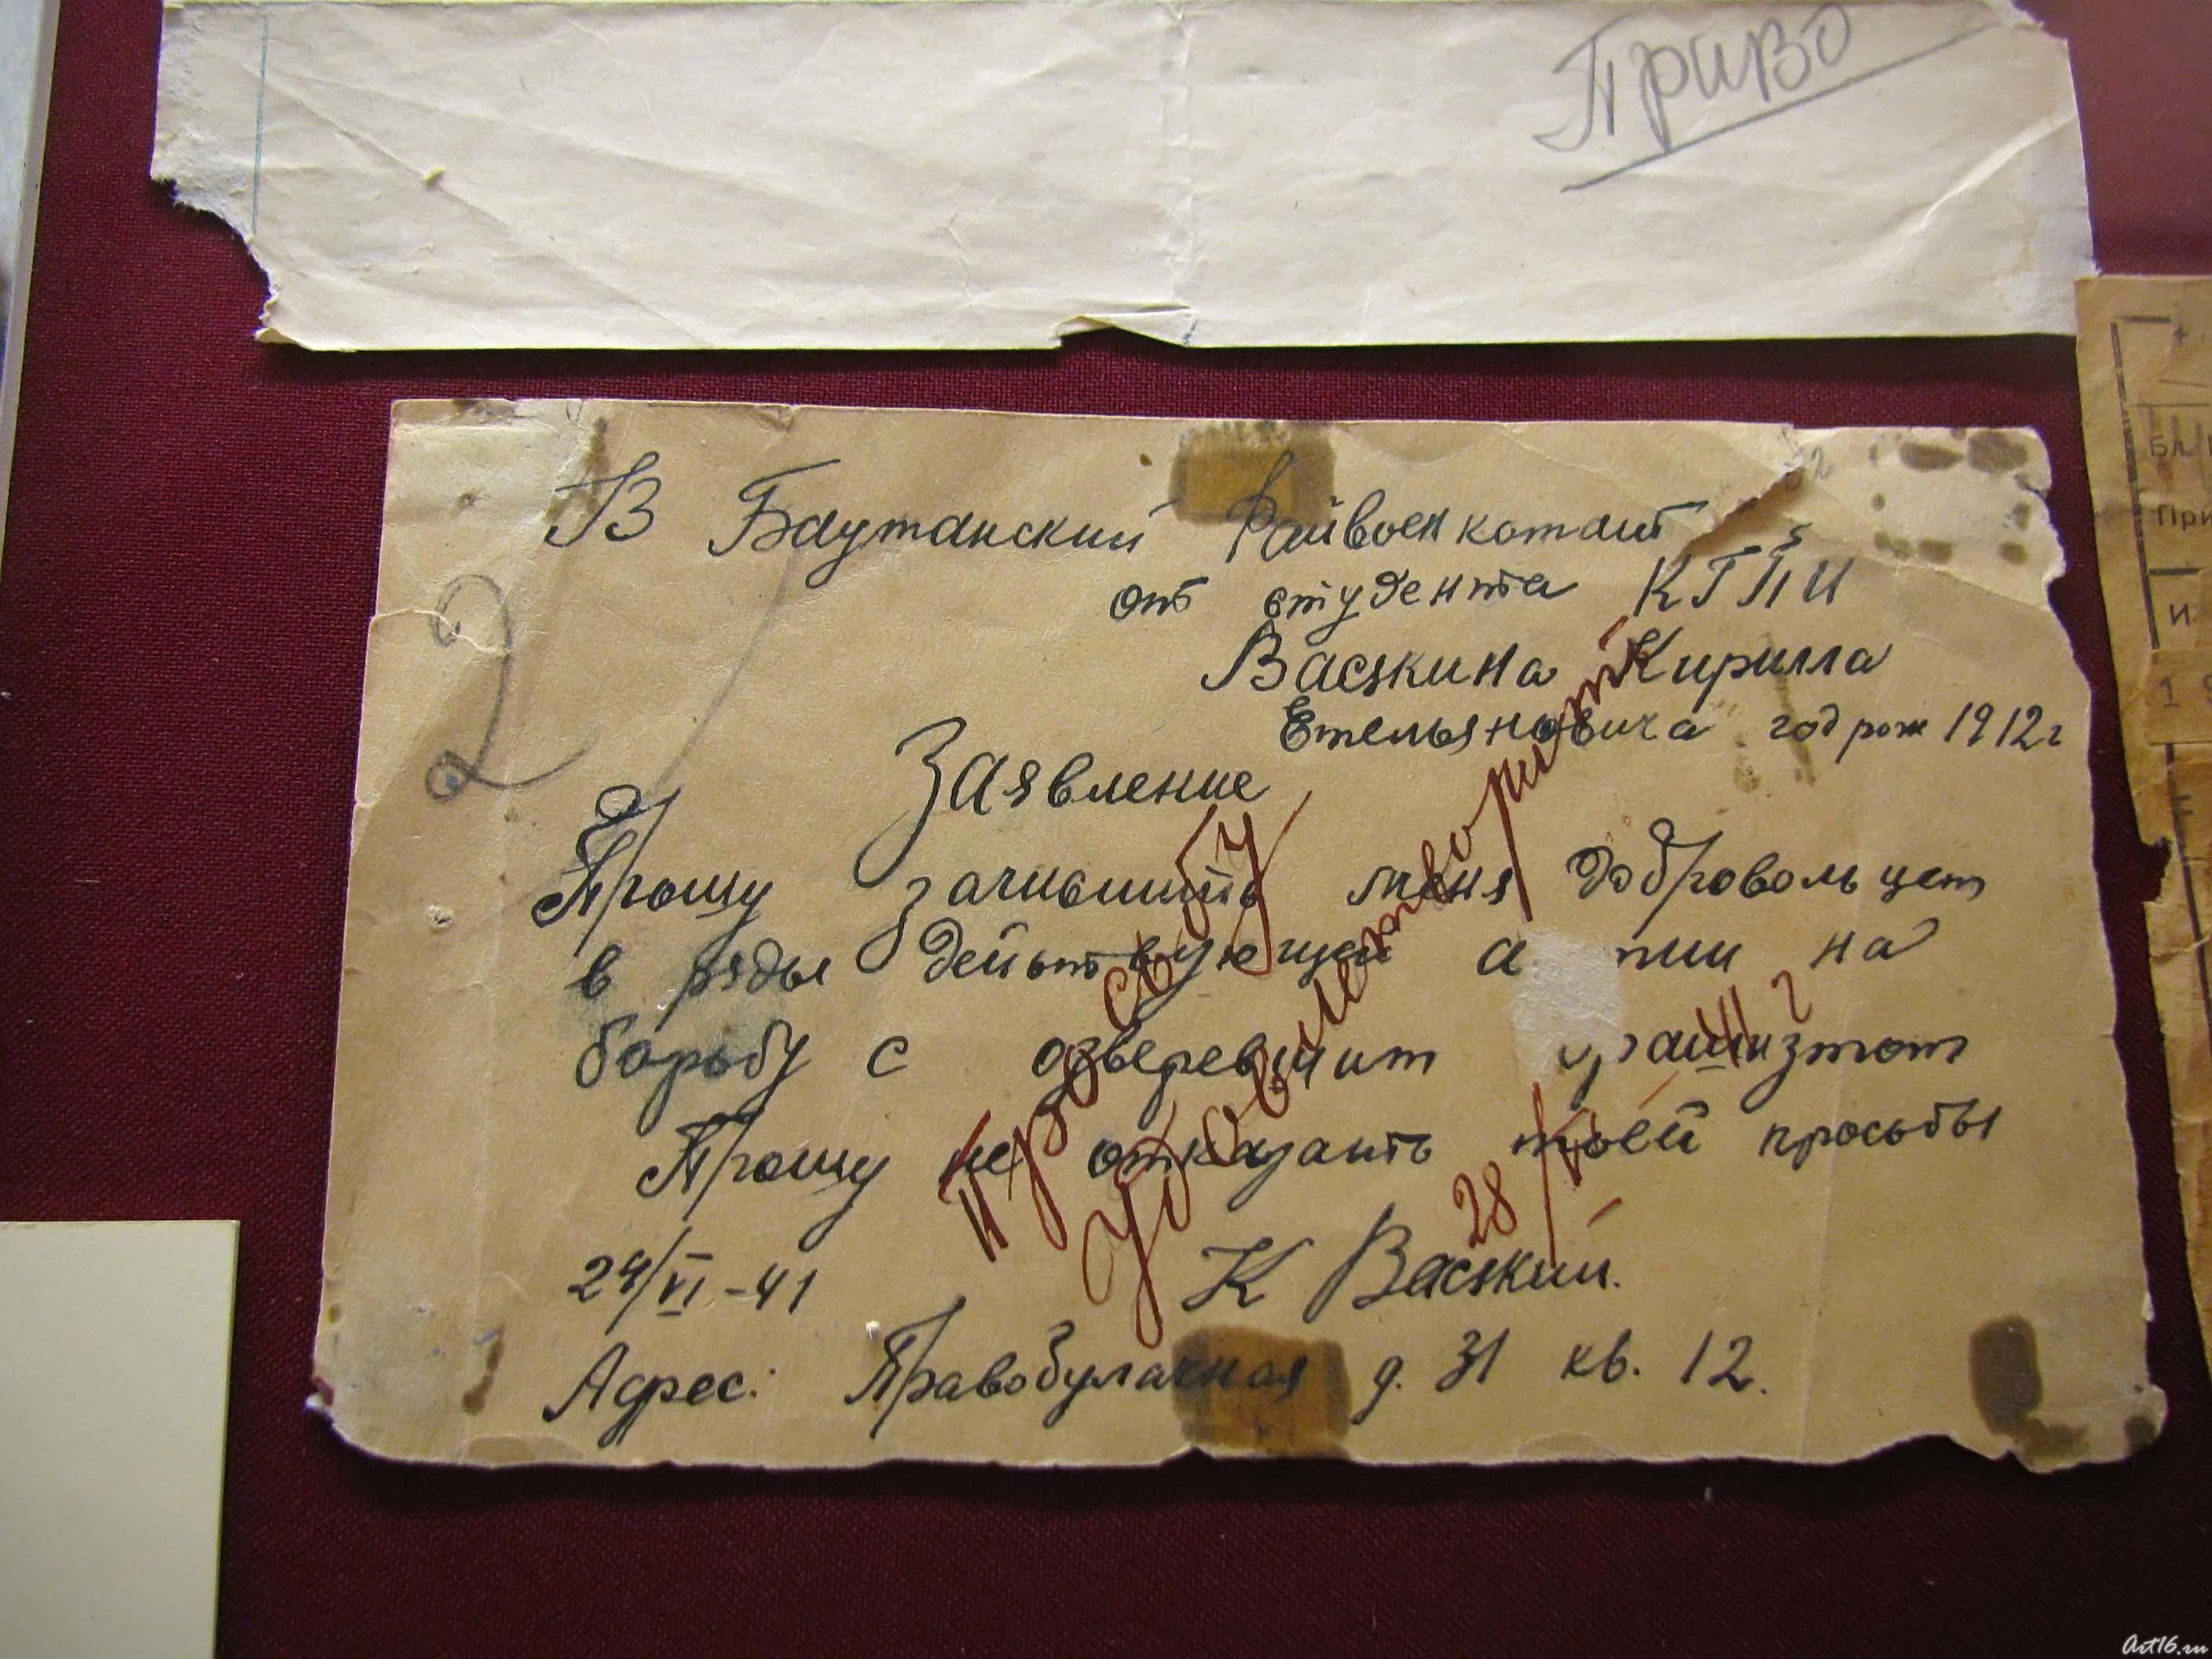 Приво
В Бауманский Райвоенкомат
от студента КГПИ
Васякина Кирилла
Емельяновича год рож 1912г
2
Заявление
Прошу зачислить меня добровольцем
в ряды действующей а мии на
борьбу с озверевшим фашизмом
Прошу не отказать моей просьбы
24/VI-41 К Васякин.
Адрес: Правобулачная д. 31 кв. 12.
просьбу
удовлетворить
28/VI 41 г
Бл.
При
И
1
Art16.ru